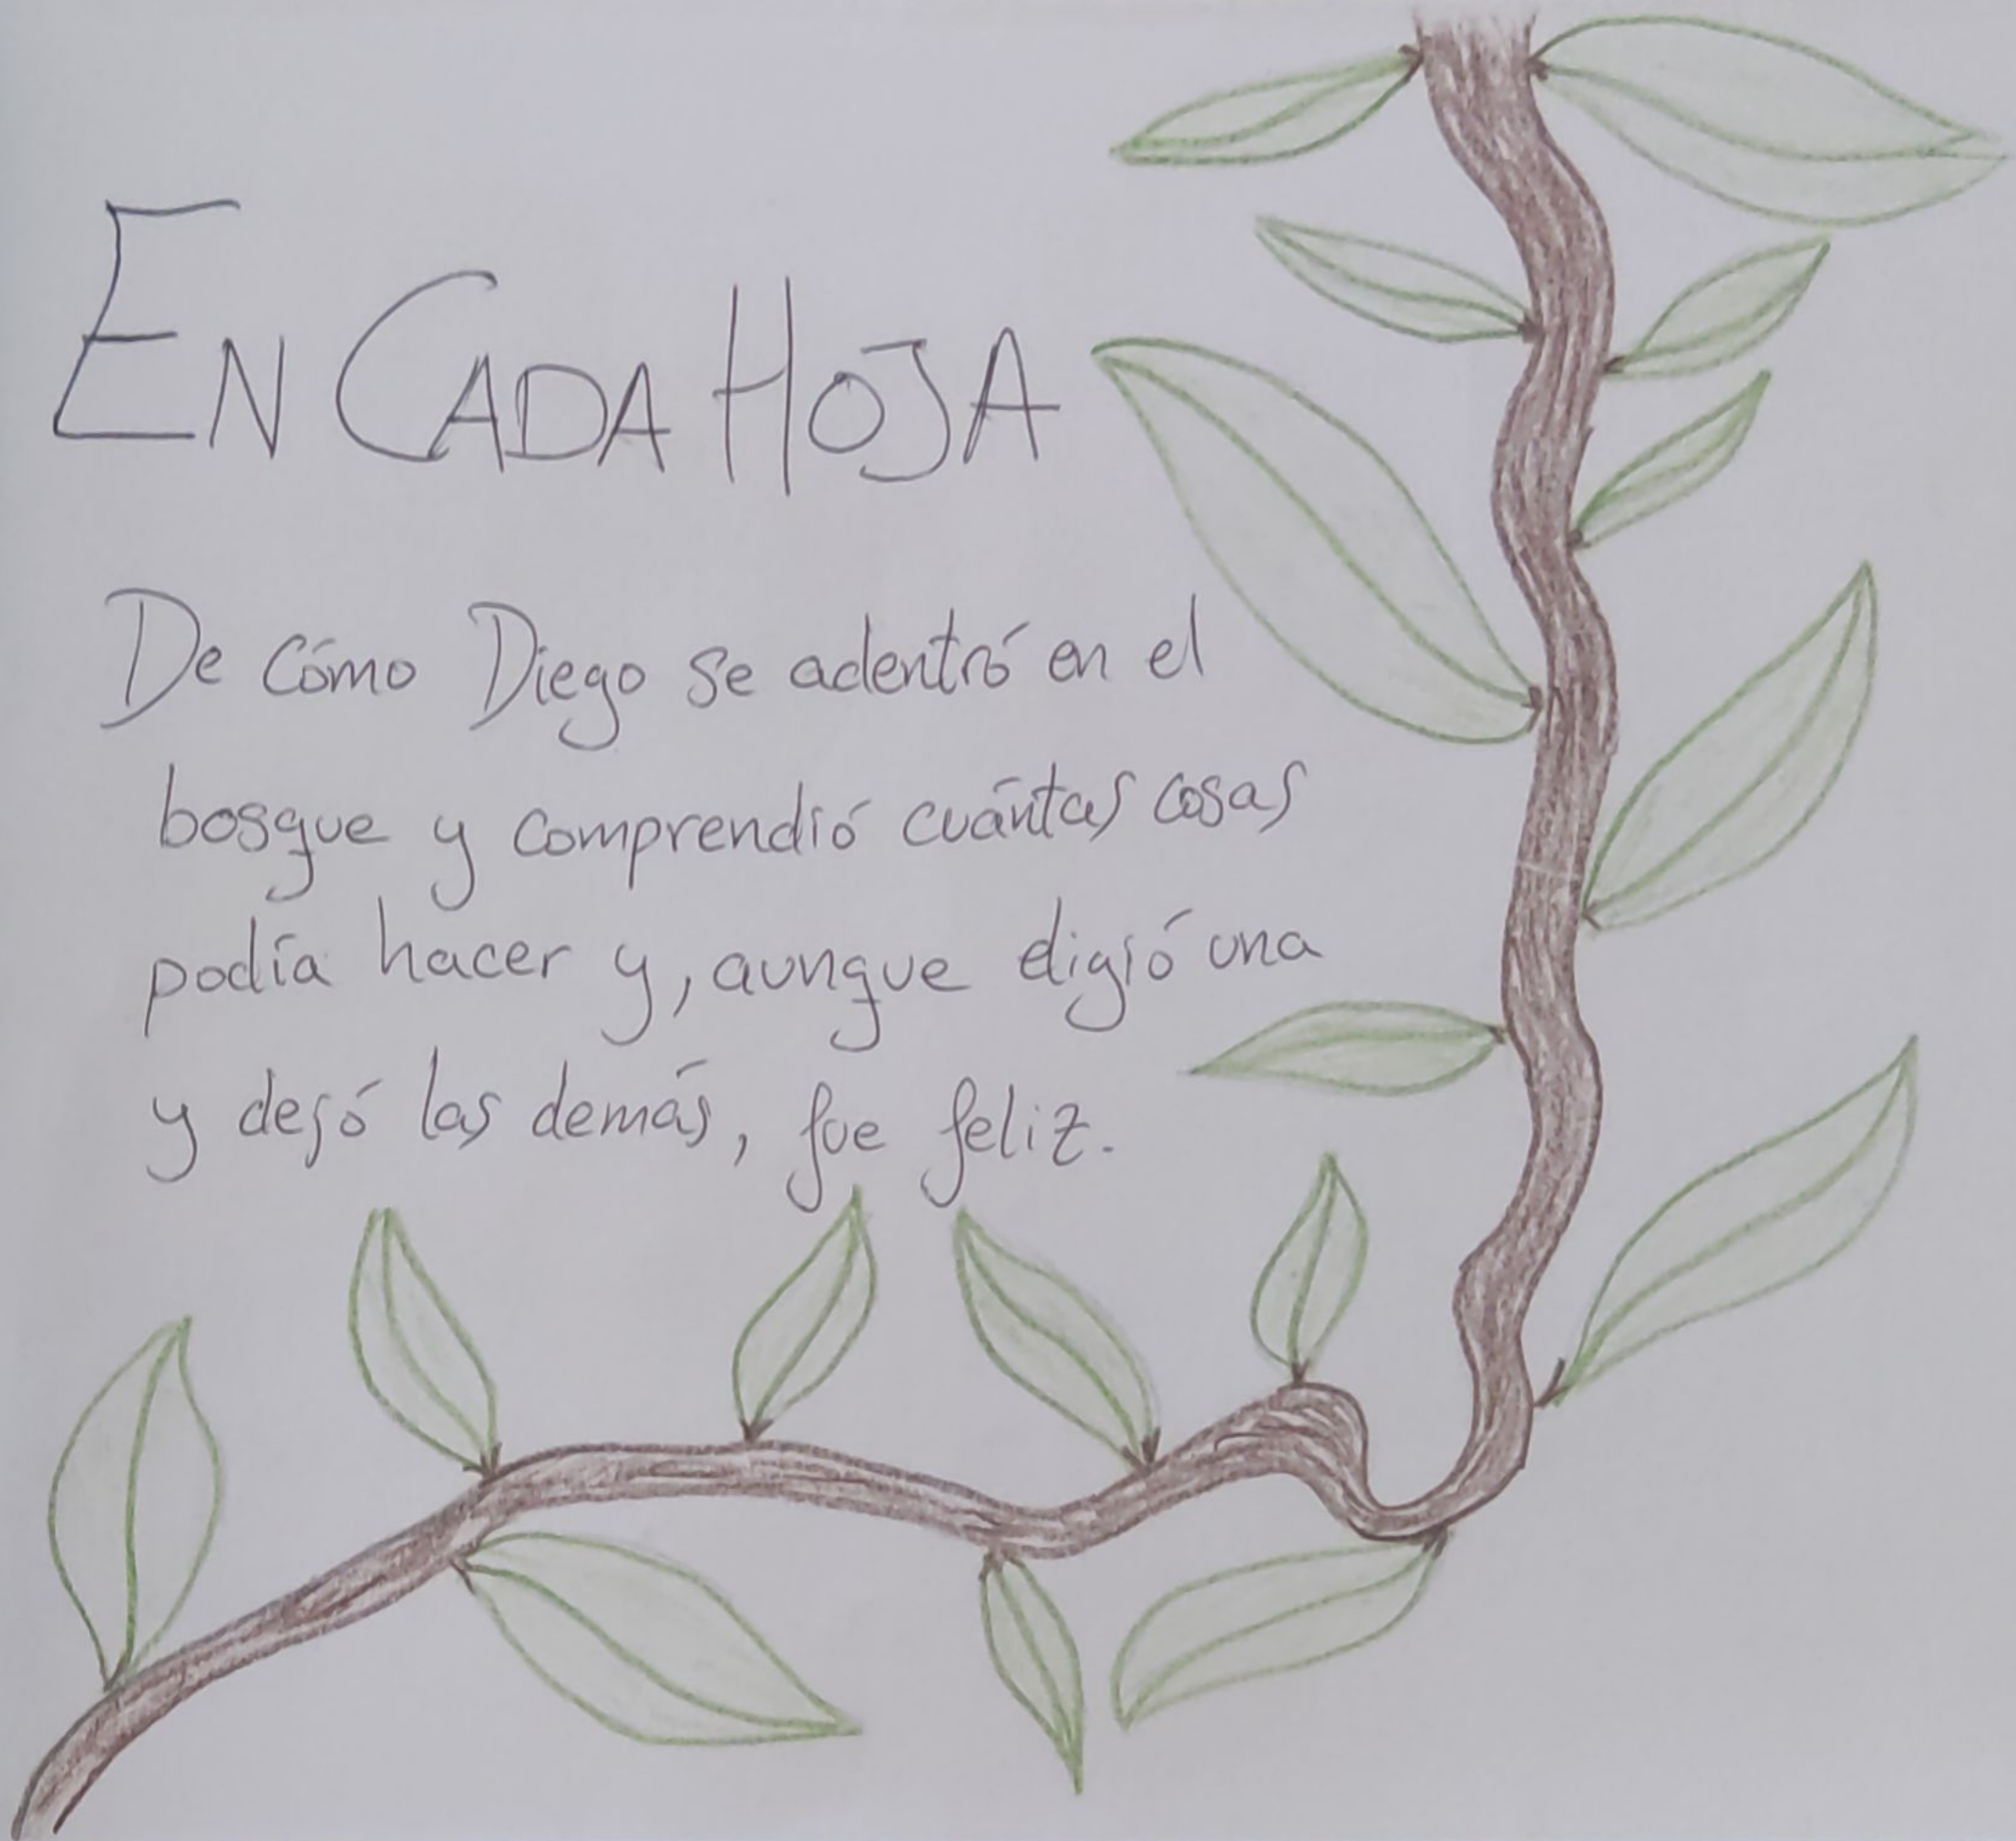 EN CADA HOJA
De cómo Diego se adentró en el
bosque y comprendió cuántas cosas
podía hacer y, aunque eligió una
y dejó las demás, fue feliz.